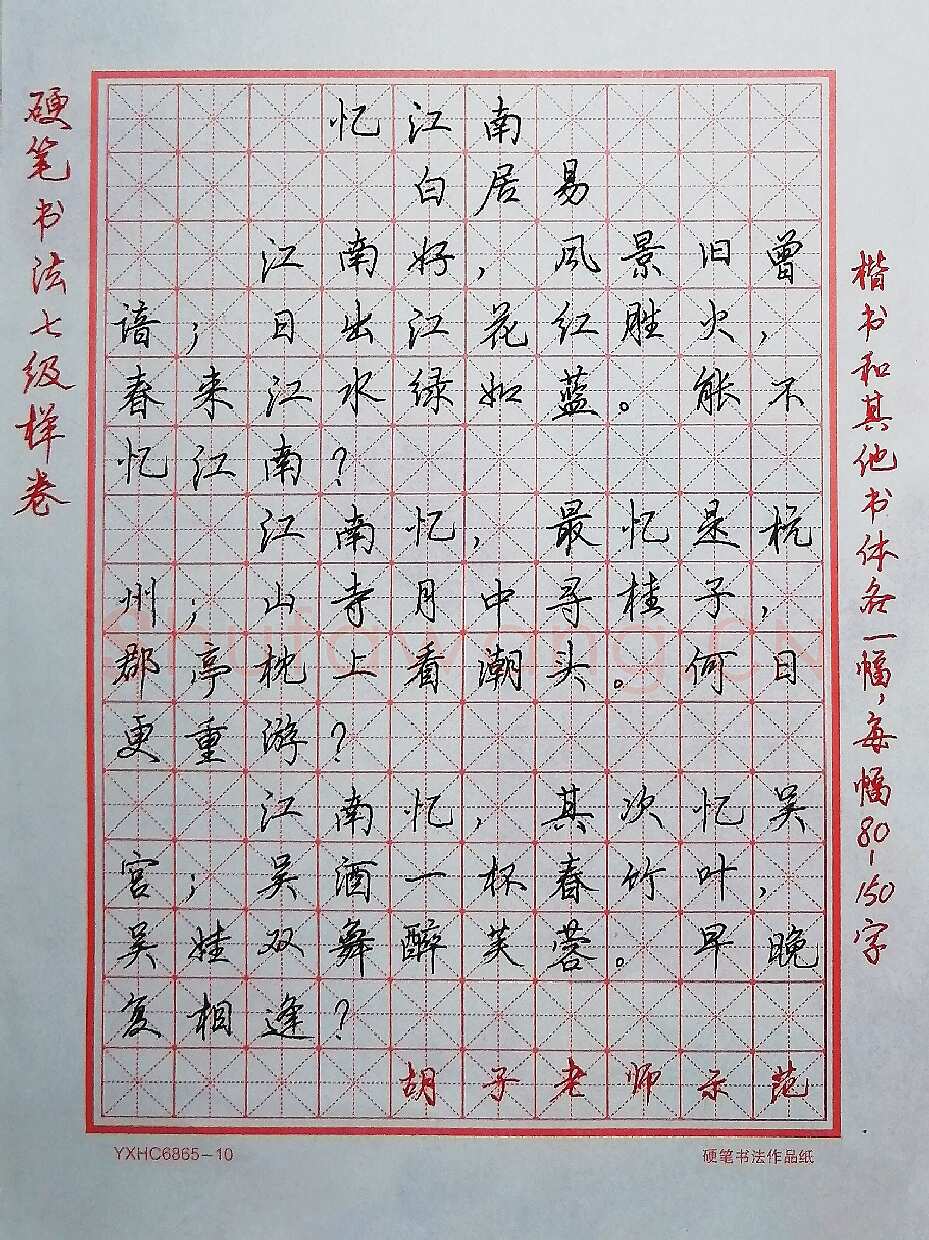 硬笔书法七级样卷
忆江南
白居易
江南好，风景旧曾
谙；日出江花红胜火，
春来江水绿如蓝。能不
忆江南？
江南忆，最忆是杭
州；山寺月中寻桂子，
郡亭枕上看潮头。何日
更重游？
江南忆，其次忆吴
宫；吴酒一杯春竹叶，
吴娃双舞醉芙蓉。早晚
复相逢？
胡子老师示范
楷书和其他书体各一幅，每幅80-150字
YXHC6865-10
硬笔书法作品纸